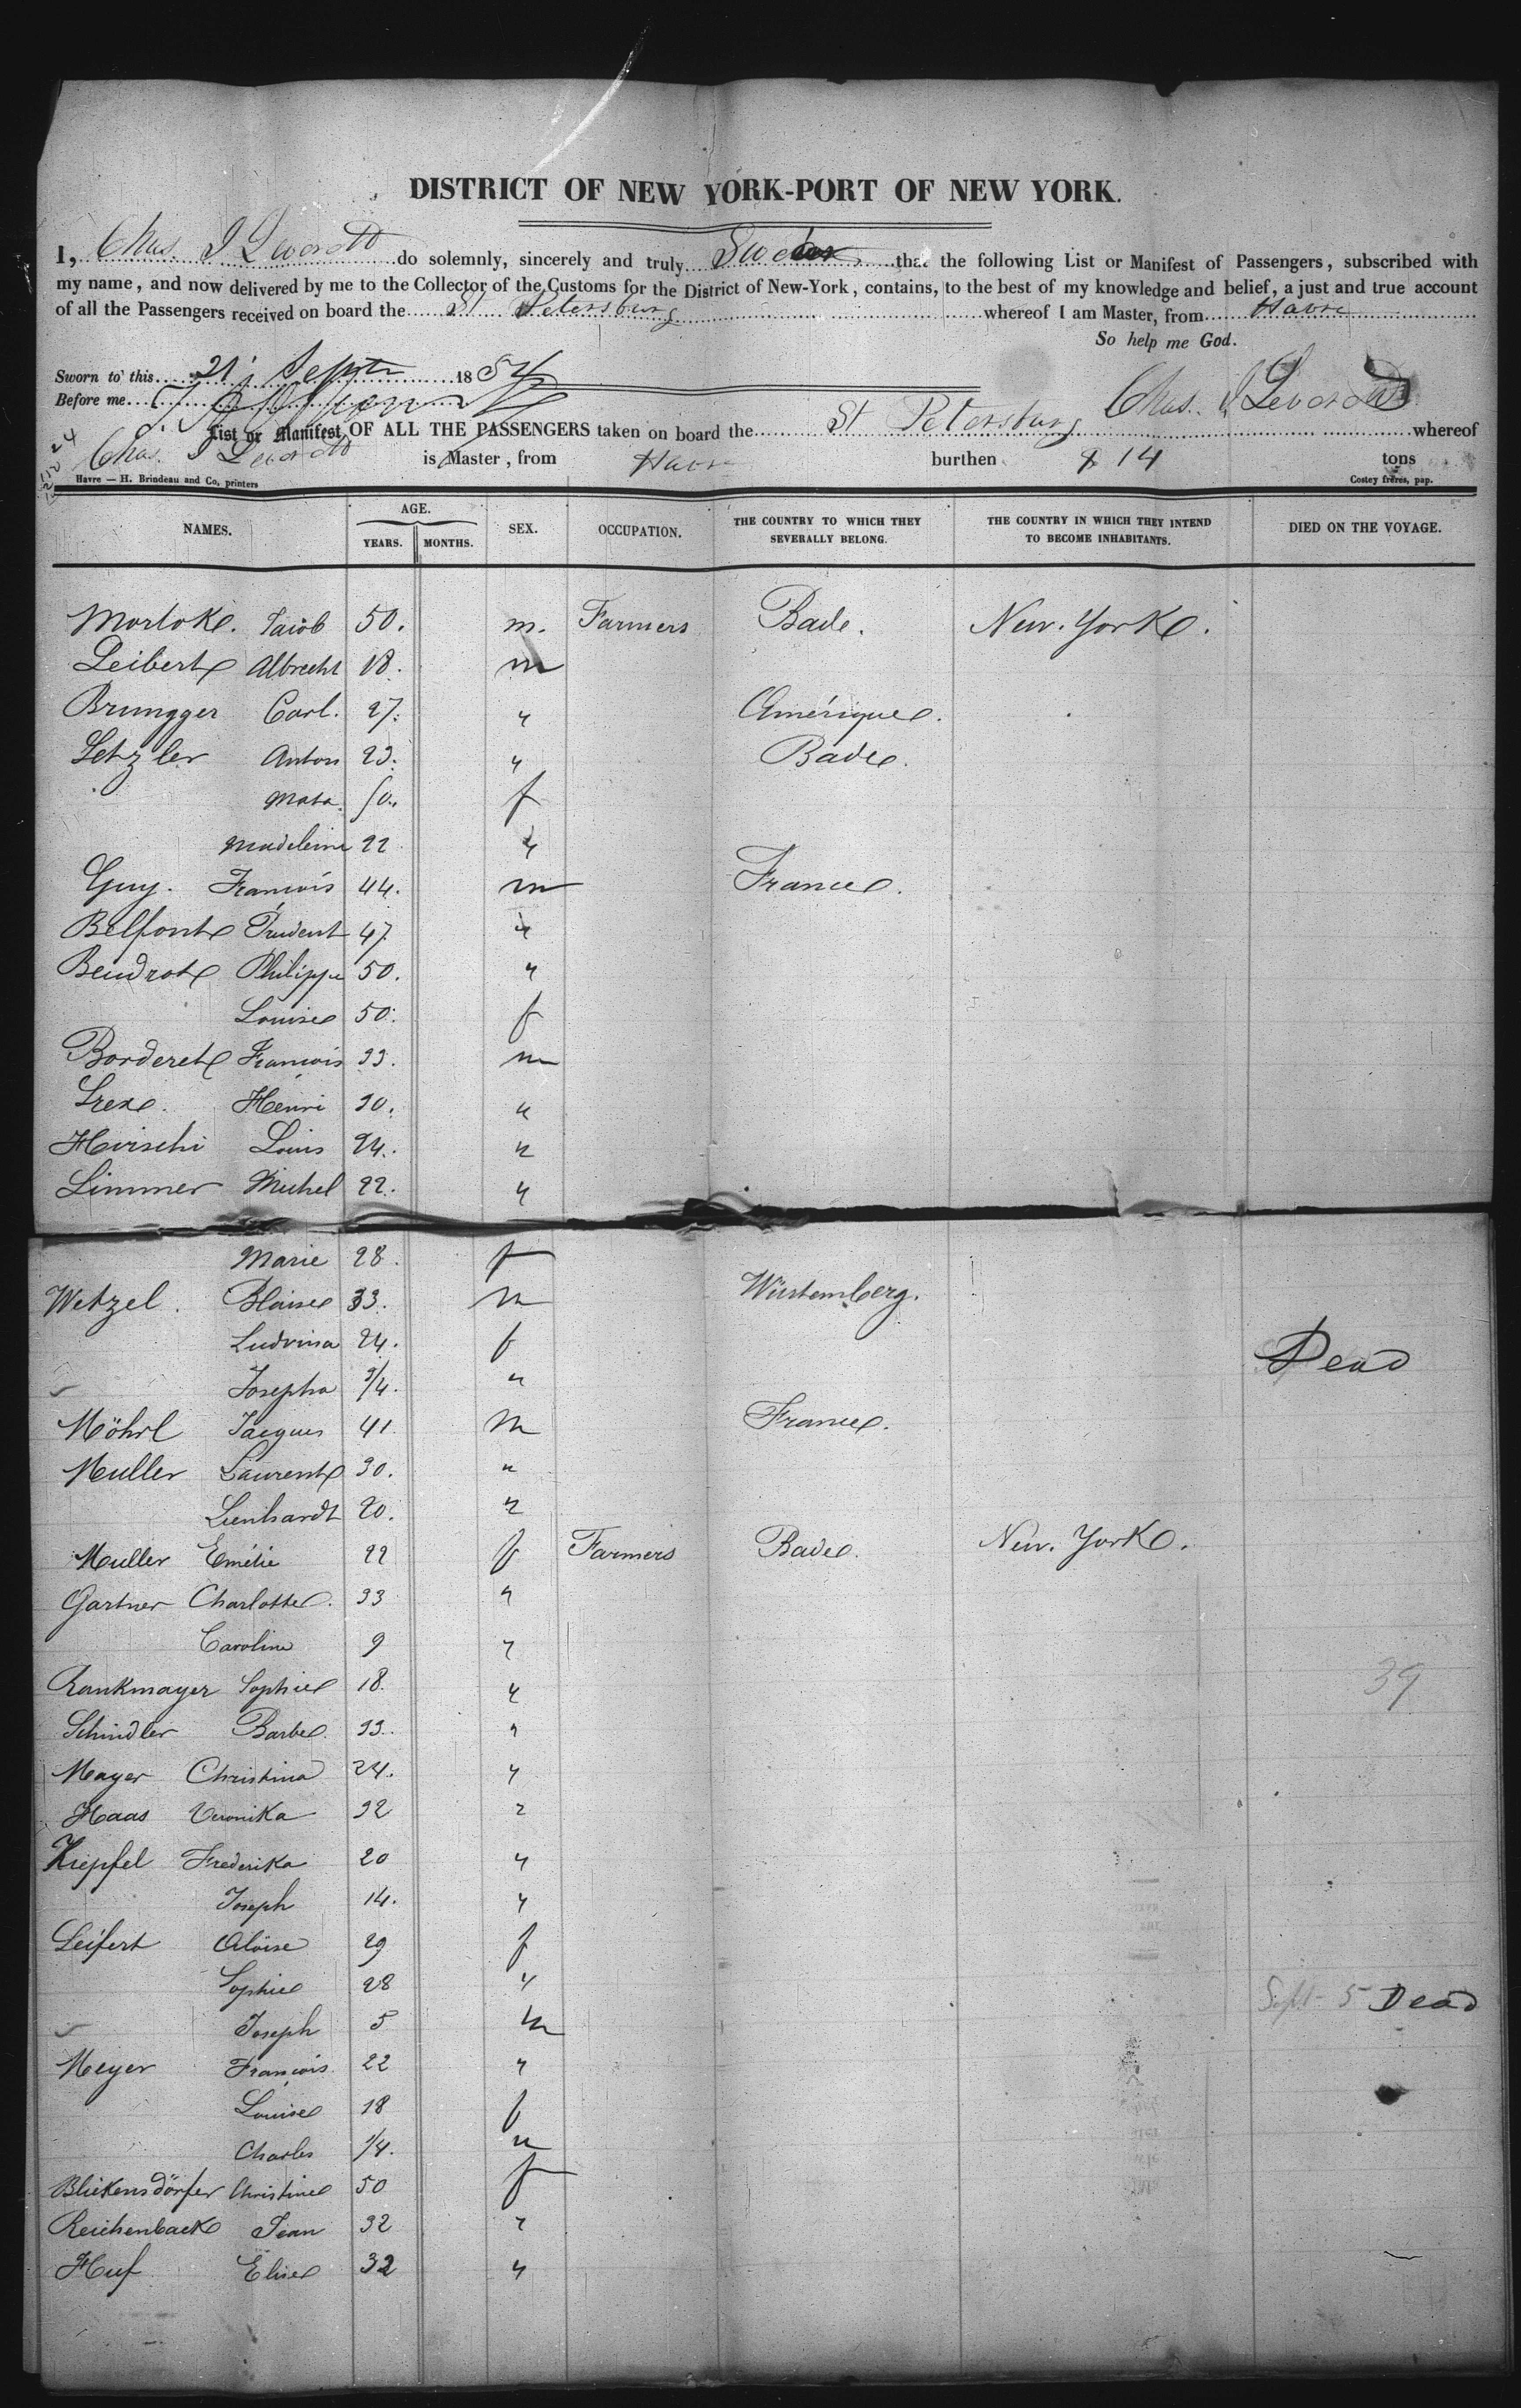 DISTRICT OF NEW YORK-PORT OF NEW YORK.
I, Chas. I Leverett do solemnly, sincerely and truly Swear that the following List or Manifest of Passengers, subscribed with
my name, and now delivered by me to the Collector of the Customs for the District of New-York, contains, to the best of my knowledge and belief, a just and true account
of all the Passengers received on board the St Petersburg whereof I am Master, from Havre
So help me God.
Sworn to this 21 Septr 1854
Before me Chas. I Leverett
List or Manifest OF ALL THE PASSENGERS taken on board the St Petersburg whereof
Chas. I Leverett is Master, from Havre burthen 814 tons
Havre — H. Brindeau and Co, printers Costey frères, pap.
NAMES. AGE. YEARS. MONTHS. SEX. OCCUPATION. THE COUNTRY TO WHICH THEY SEVERALLY BELONG. THE COUNTRY IN WHICH THEY INTEND TO BECOME INHABITANTS. DIED ON THE VOYAGE.
Morloke. Jacob 50. m. Farmers Bade. New. York.
Leibert Albrecht 18. m
Brungger Carl. 27. "
Amérique.
Letzler Anton 23. " Bade.
50. f
Madeleine 22 "
Guy. François 44. m France.
Belfont Prudent 47 "
Beudrot Philippe 50. "
Louise 50. f
Borderet François 33. m
Henri 30. "
Hirschi Louis 24. "
Limmer Michel 22. "
Marie 28. f
Wetzel. Blaise 33. m Würtemberg.
Ludvina 24. f
Josepha 3/4. " Dead
Möhrl Jacques 41 m France.
Muller Laurent 30. "
Lienhardt 20. "
Muller Emélie 22 f Farmers Bade. New. York.
Gartner Charlotte. 33 "
Caroline 9 "
Rankmayer Sophie 18. "
39
Schindler Barbe. 33. "
Mayer Christina 24. "
Haas Veronika 32 "
Kiepfel Frederika 20 "
Joseph 14. "
Leifert Aloïse 29 f
Sophie 28 "
Joseph 5 m Sept - 5 Dead
Meyer François. 22 "
Louise 18 f
Charles 1/4. m
Blickensdörfer Christine 50 f
Reichenback Jean 32 "
Huf Elise 32 "